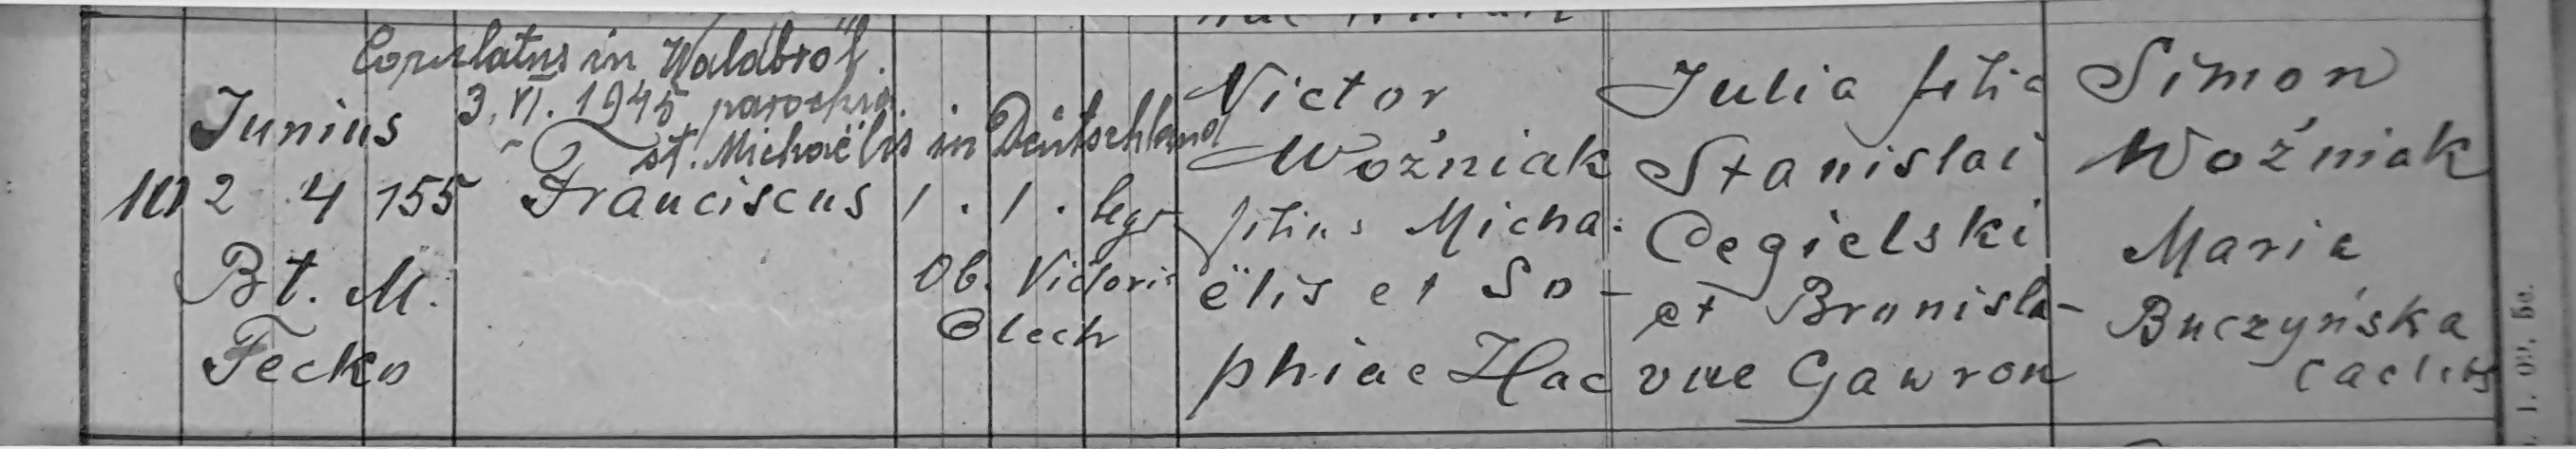 Copulatus in Waldbröl.
3. VI. 1945 parochia
st. Michaëlis in Deutschland
Junius
10 2 4 155 Franciscus 1 . 1 . leg
Bt. M.
Fecko
Ob. Victoria
Olech
Victor
Woźniak
filius Micha-
ëlis et So-
phiae Hac
Julia filia
Stanislai
Cegielski
et Bronisla-
vae Gawron
Simon
Woźniak
Maria
Buczyńska
caelebs